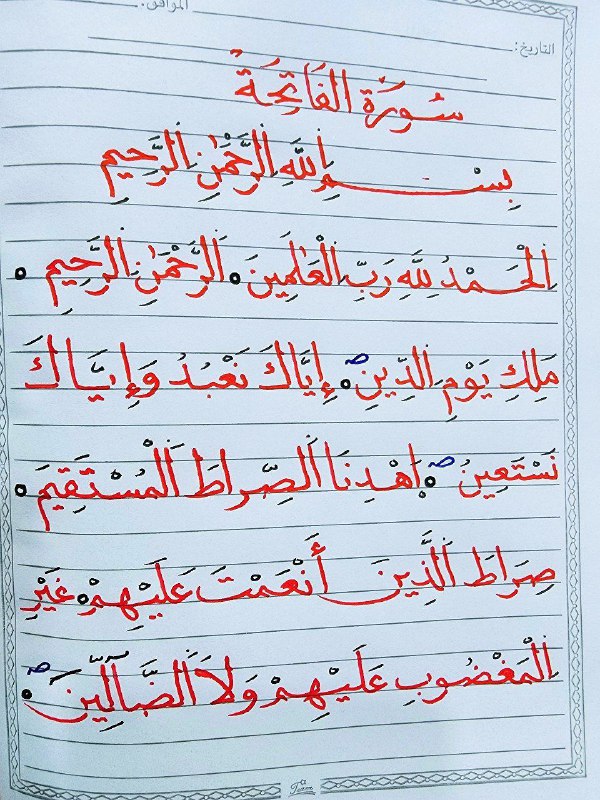 الموافق:
التاريخ:
سُورَةُ الفَاتِحَةُ
بِسْمِ اِللَّهِ اِلرَّحْمَٰنِ اِلرَّحِيمِ
اِلْحَمْدُ لِلَّهِ رَبِّ اِلْعَٰلَمِينَ ۝ اَلرَّحْمَٰنِ اِلرَّحِيمِ ۝
مَلِكِ يَوْمِ اِلدِّينِ ۝ ص إِيَّاكَ نَعْبُدُ وَإِيَّاكَ
نَسْتَعِينُ ۝ ص اَهْدِنَا اَلصِّرَاطَ اَلْمُسْتَقِيمَ ۝
صِرَاطَ اَلَّذِينَ أَنْعَمْتَ عَلَيْهِمْ ۝ غَيْرِ
اِلْمَغْضُوبِ عَلَيْهِمْ وَلَا اَلضَّآلِّينَ ۝ ص